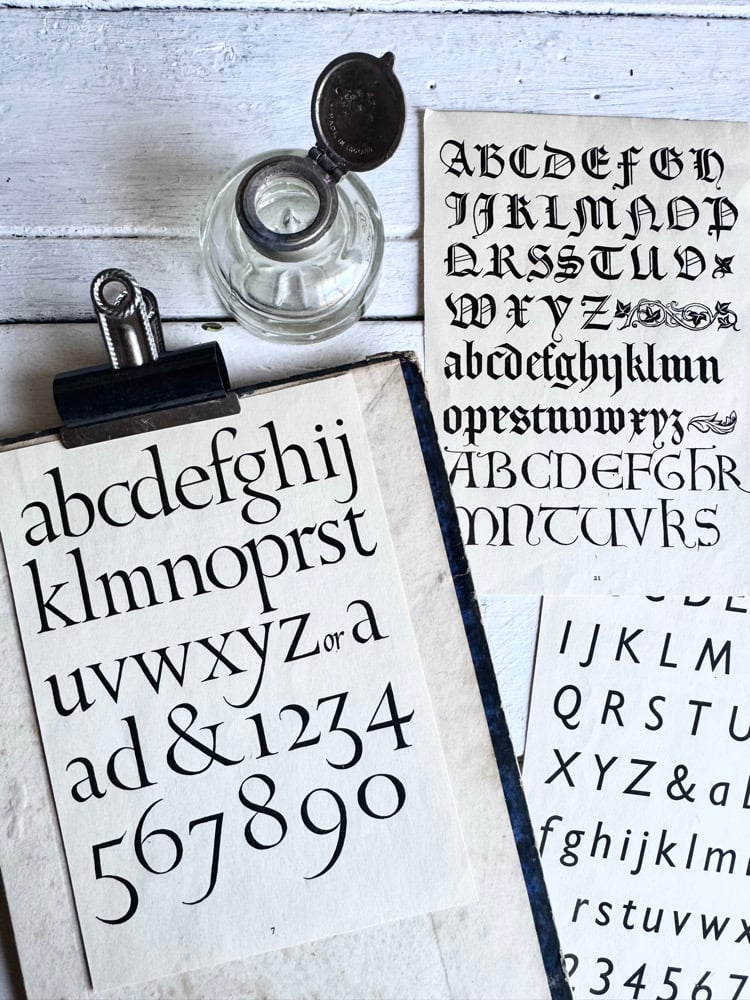 MADE IN ENGLAND
ABCDEFGH
IJKLMNOP
QRSSTUV
WXYZ
abcdefghijklmn
oprstuvwxyz
ABCDEFGHR
MNTUVKS
21
abcdefghij
klmnoprst
uvwxyz or a
ad & 1234
567890
7
IJKLM
QRSTU
XYZ&a
fghijklm
rstuvwx
234567